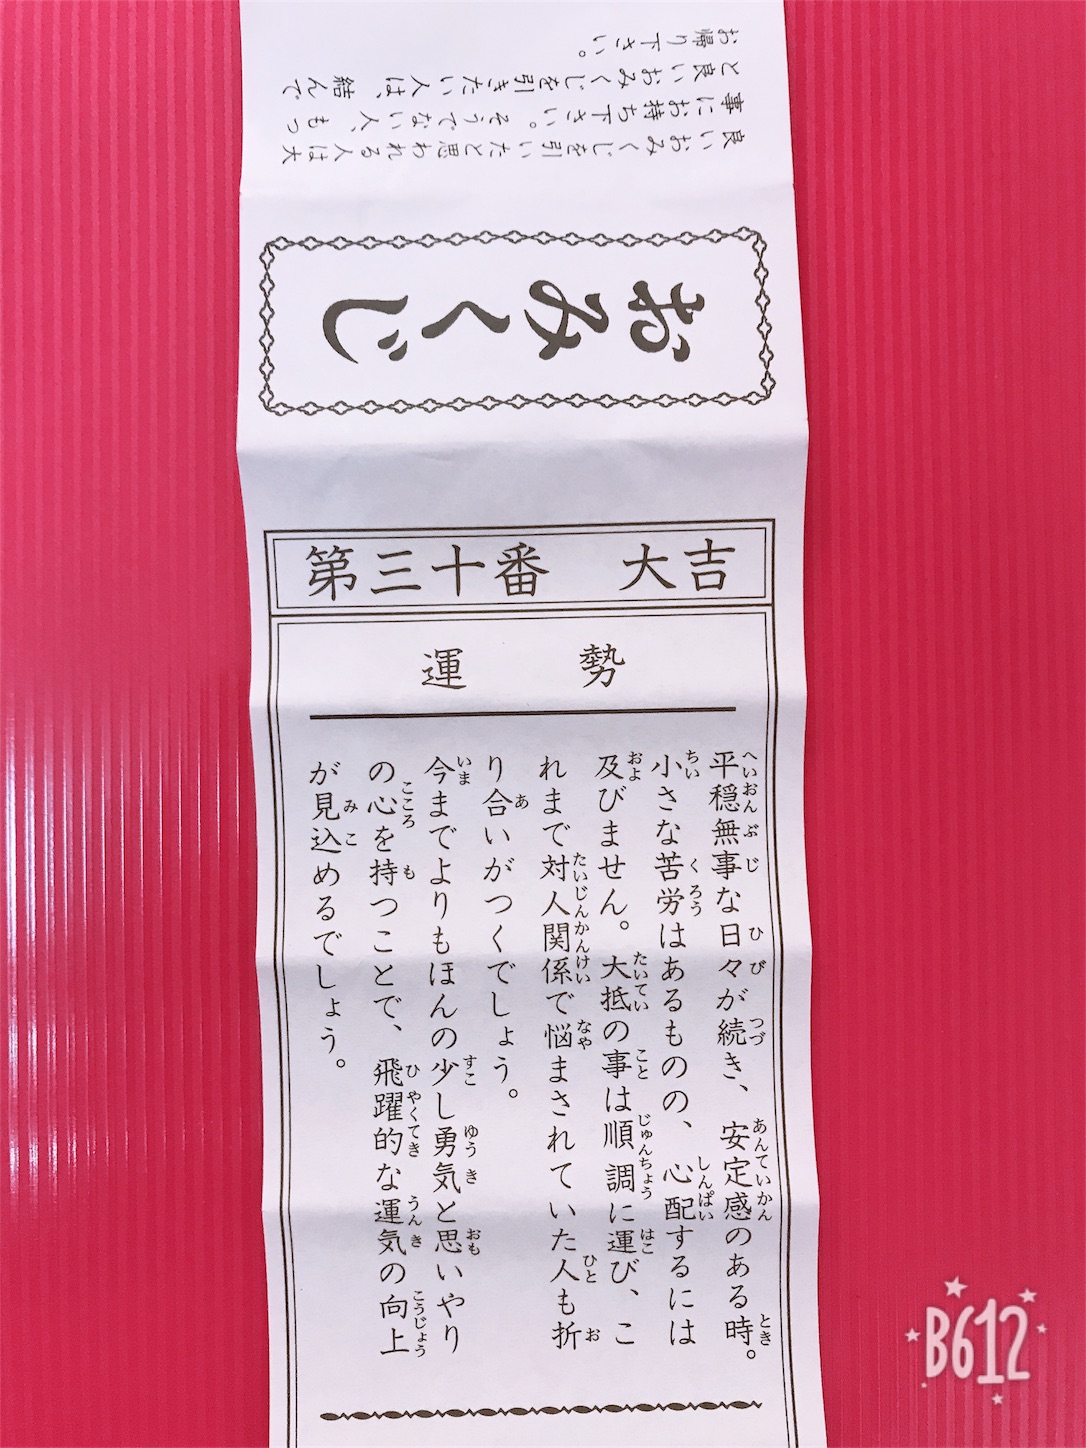 良いおみくじを引いたと思われる人は大
事にお持ち下さい。そうでない人、もっ
と良いおみくじを引きたい人は、結んで
お帰り下さい。
おみくじ
第三十番 大吉
運勢
平穏無事な日々が続き、安定感のある時。
小さな苦労はあるものの、心配するには
及びません。大抵の事は順調に運び、こ
れまで対人関係で悩まされていた人も折
り合いがつくでしょう。
今までよりもほんの少し勇気と思いやり
の心を持つことで、飛躍的な運気の向上
が見込めるでしょう。
B612